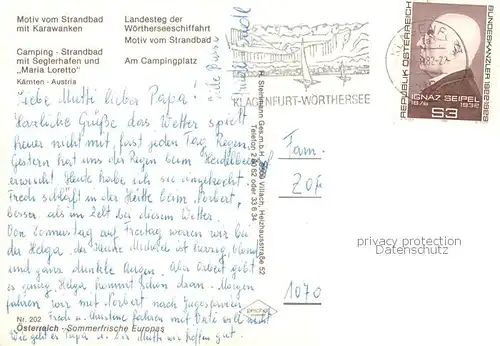 Motiv vom Strandbad
mit Karawanken
Camping - Strandbad
mit Seglerhafen und
„Maria Loretto"
Kärnten - Austria
Landesteg der
Wörtherseeschiffahrt
Motiv vom Strandbad
Am Campingplatz
Liebe Mutti lieber Papa!
Herzliche Grüße das Wetter spielt
heuer nicht mit, fast jeden Tag Regen.
Gestern hat uns der Regen beim
erwischt. Heute habe ich sie eingekocht.
Fredi schläft in der Hütte beim Norbert,
besser als im Zelt bei diesem Wetter.
Von Donnerstag auf Freitag waren wir bei
der Helga. der kleine Michael ist herzig, blond
und ganz dunkle Augen. Aber Arbeit gibt
es genug, Helga kommt schon dran. Morgen
fahren wir mit Norbert nach Jugoslawien.
Fredi u. Christine fahren mit Vati will nicht
Wie geht es Papa u. Dir Mutti wir hoffen gut.
Nr. 202
Österreich - Sommerfrische Europas
H. Steinmann Ges.m.b.H. 9500 Villach, Heizhausstraße 52
Telefon 2 80 62 oder 33 6 34
KLAGENFURT-WÖRTHERSEE
REPUBLIK ÖSTERREICH
BUNDESKANZLER 1922-1929
IGNAZ SEIPEL
1876 1932
S3
Fam.
1070
privacy protection
Datenschutz